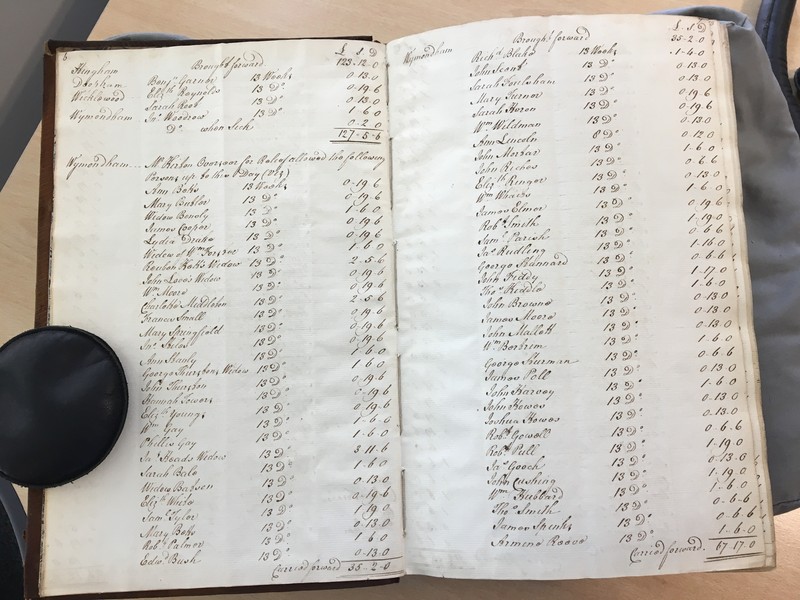 6
£ s D
Brought forward 123.12.0
Hingham Benjn Garner 13 Weeks 0.13.0
Deopham Elizth Reynolds 13 Do 0.19.6
Wicklewood Sarah Cook 13 Do 0.13.0
Wymondham Jno Woodrow 13 Do 1.6.0
Do when Sick 0.2.0
127.5.6
Wymondham Mr Kerton Overseer for Relief allowed the following
Persons up to the Day (Viz)
Ann Boko 13 Weeks 0.19.6
Mary Butler 13 Do 0.19.6
Widow Bensly 13 Do 1.6.0
James Cooper 13 Do 0.19.6
Lydia Drake 13 Do 0.19.6
Widow of Wm 13 Do 1.6.0
Reuben Widow 13 Do 2.5.6
John Love's Widow 13 Do 0.19.6
Wm Moore 13 Do 0.19.6
Middleton 13 Do 2.5.6
Francis Small 13 Do 0.19.6
Mary Springfield 13 Do 0.19.6
Jno 13 Do 0.19.6
Ann Stanly 13 Do 1.6.0
George Thurstons Widow 13 Do 1.6.0
John Thurston 13 Do 0.19.6
Hannah Towers 13 Do 0.19.6
Elizth Youngs 13 Do 0.19.6
Wm Gay 13 Do 1.6.0
Phillis Gay 13 Do 1.6.0
Jn Roads Widow 13 Do 3.11.6
Sarah Bale 13 Do 1.6.0
Widow 13 Do 0.13.0
Elizth White 13 Do 0.19.6
Saml Tylor 13 Do 1.19.0
Mary Boko 13 Do 0.13.0
Robt Palmer 13 Do 1.6.0
Edwd Bush 13 Do 0.13.0
Carried forward 35.2.0
£ s D
Brought forward 35.2.0
Wymondham Richd Blake 13 Weeks 1.4.0
John Scont 13 Do 0.13.0
Sarah Foulsham 13 Do 0.13.0
Mary Turner 13 Do 0.19.6
Sarah Heron 13 Do 0.19.6
Wm Wildman 13 Do 0.13.0
Ann Lincoln 8 Do 0.12.0
John 13 Do 1.6.0
John Riches 13 Do 0.6.6
Elizth Ringer 13 Do 1.6.0
Wm 13 Do 1.6.0
James Elmer 13 Do 0.19.6
Robt Smith 13 Do 1.19.0
Saml Parish 13 Do 0.6.6
Jas Rudling 13 Do 1.16.0
George Stannard 13 Do 0.6.6
John Fiddy 13 Do 1.17.0
Thos 13 Do 1.6.0
John Browne 13 Do 0.13.0
James Moore 13 Do 0.13.0
John Mallett 13 Do 0.13.0
Wm 13 Do 1.6.0
George Sturman 13 Do 0.6.6
James Poll 13 Do 0.13.0
John Harvey 13 Do 1.6.0
John Howes 13 Do 0.13.0
Joshua Howes 13 Do 0.13.0
Robt Gowell 13 Do 0.6.6
Robt Pell 13 Do 1.19.0
Jas Gooch 13 Do 0.13.0
John Cushing 13 Do 1.19.0
Wm Hubbard 13 Do 1.6.0
Thos Smith 13 Do 0.6.6
James Spinks 13 Do 0.6.6
Reeve 13 Do 1.6.0
Carried forward. 67.17.0